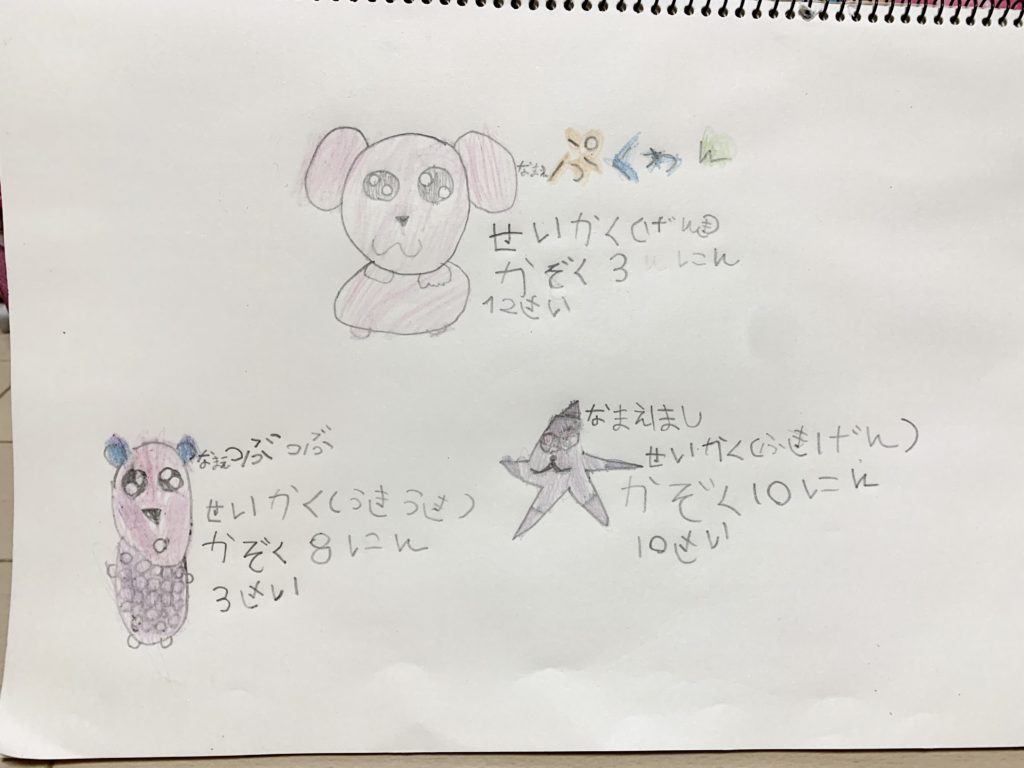 なまえ ぷくわん
せいかく(げんき)
かぞく 3 にん
12さい
なまえつぶつぶ
せいかく(うきうき)
かぞく 8 にん
3さい
なまえほし
せいかく(ふきげん)
かぞく 10 にん
10さい